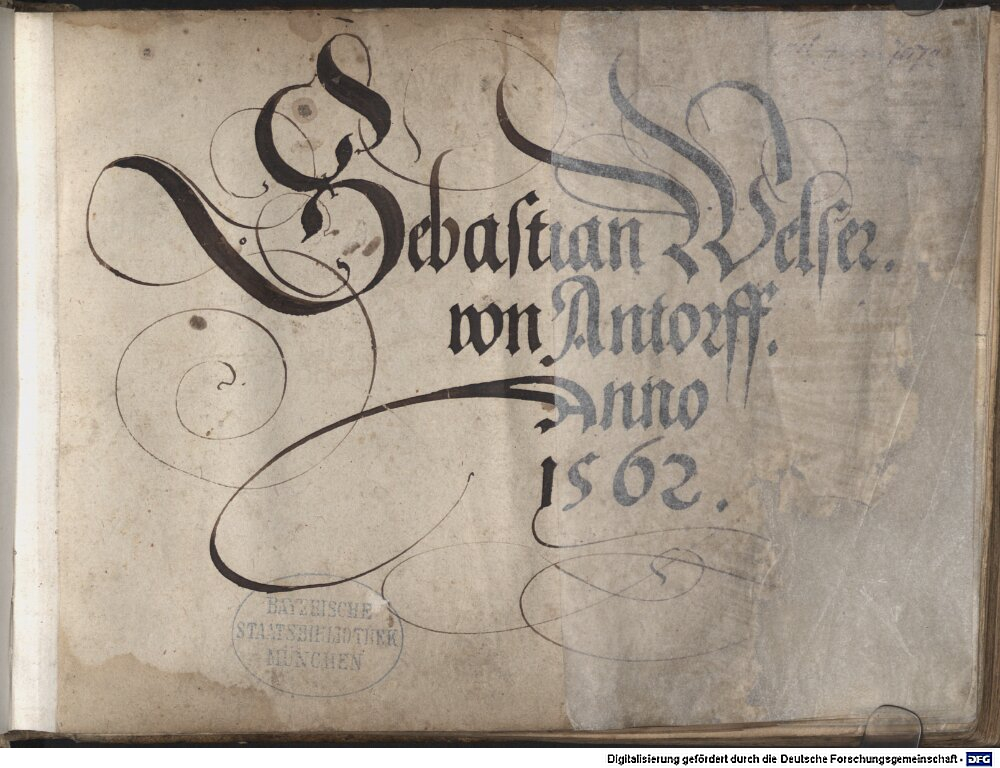 Sebastian Welser.
von Antorff.
Anno
1562.
BAYERISCHE
STAATSBIBLIOTHEK
MÜNCHEN
Digitalisierung gefördert durch die Deutsche Forschungsgemeinschaft - DFG